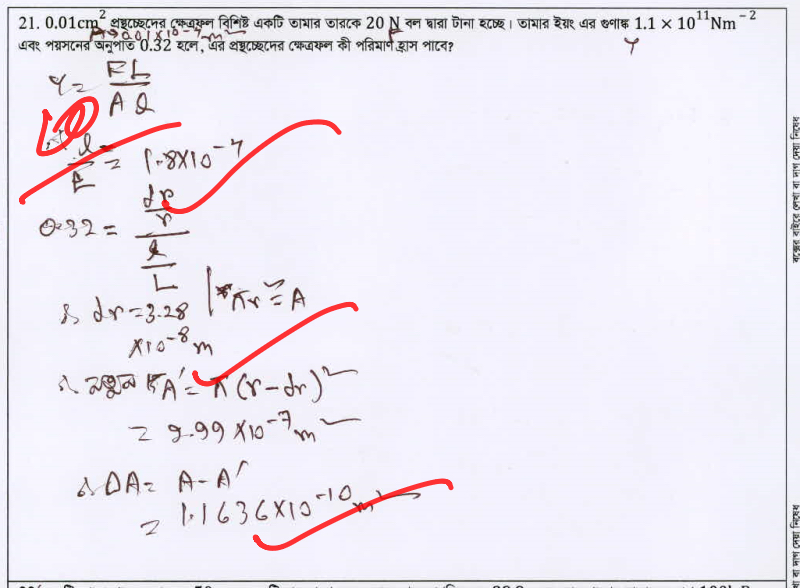 21. 0.01cm² প্রস্থচ্ছেদের ক্ষেত্রফল বিশিষ্ট একটি তামার তারকে 20 N বল দ্বারা টানা হচ্ছে। তামার ইয়ং এর গুণাঙ্ক 1.1 × 10¹¹Nm⁻²
এবং পয়সনের অনুপাত 0.32 হলে, এর প্রস্থচ্ছেদের ক্ষেত্রফল কী পরিমাণ হ্রাস পাবে?
Y = FL / A l
l / L = 1.8×10⁻⁴
0.32 = (dr / r) / (l / L)
∴ dr = 3.28 ×10⁻⁸ m | πr² = A
∴ নতুন A' = π (r − dr)²
= 9.99 ×10⁻⁷ m²
∴ ΔA = A − A'
= 1.1636×10⁻¹⁰ m²
বক্সের বাইরে লেখা বা দাগ দেয়া নিষেধ